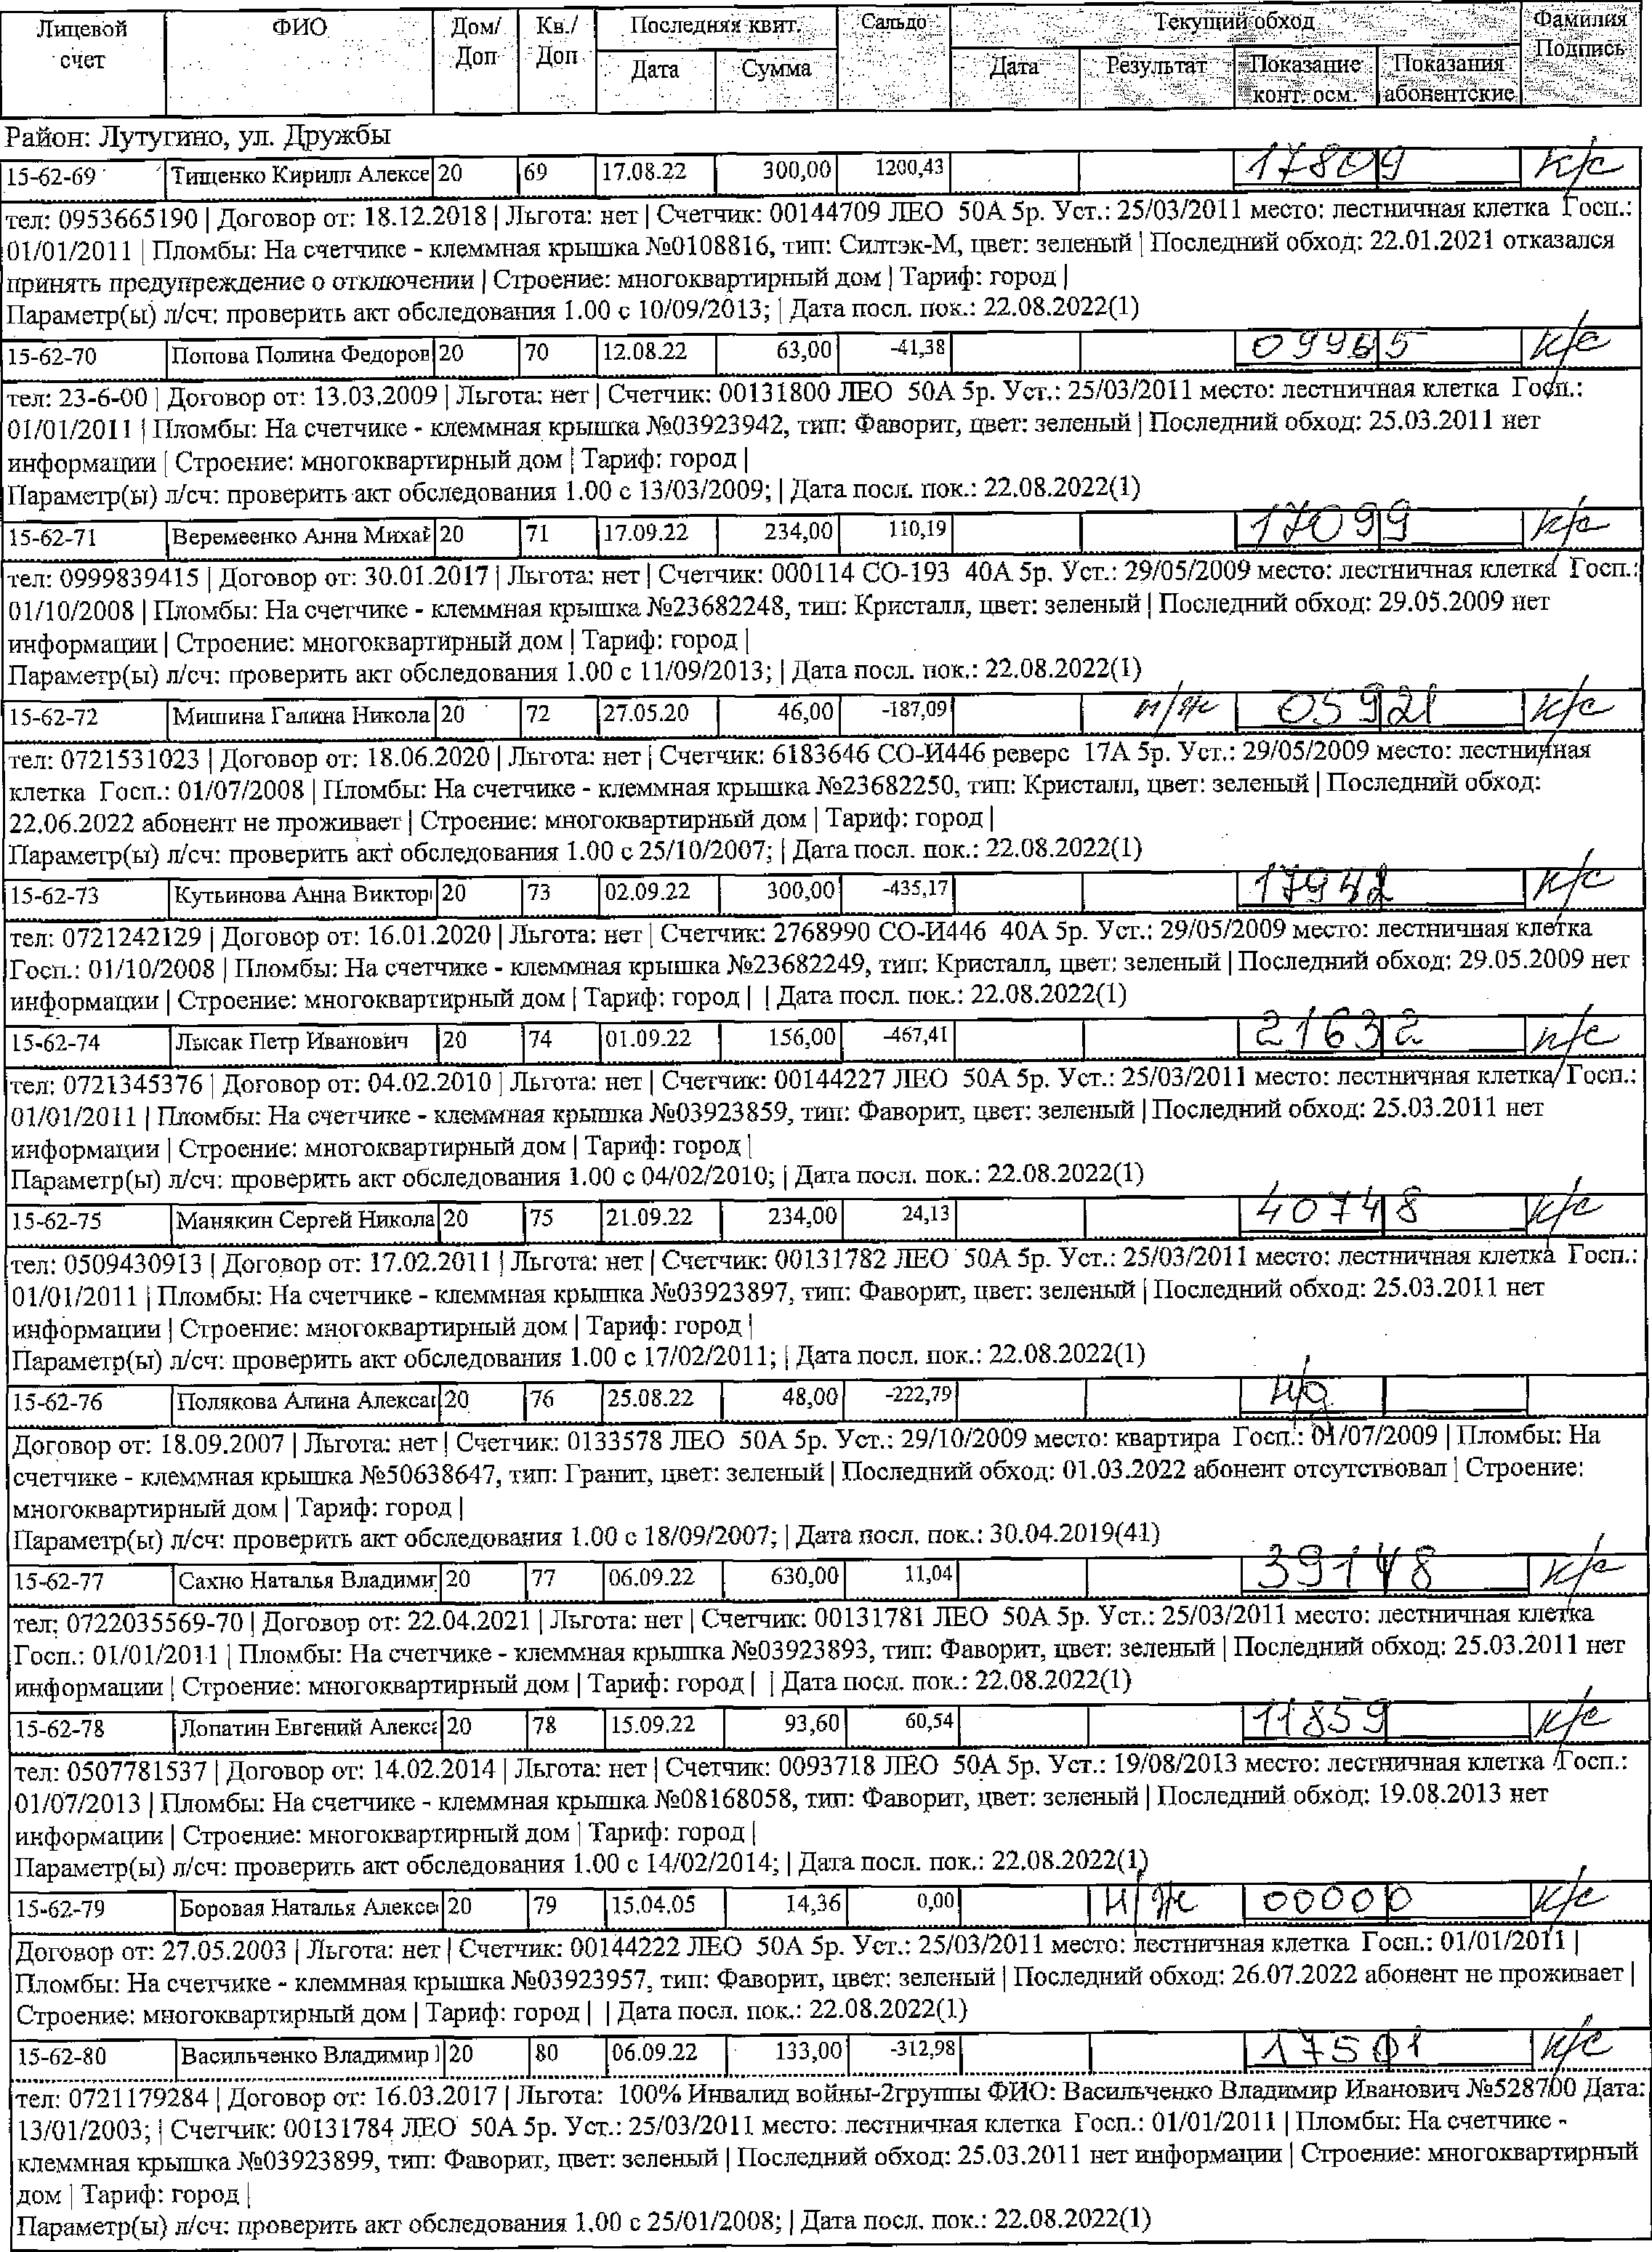 Лицевой счет ФИО Дом/Доп Кв./Доп Последняя квит. Сальдо Текущий обход Фамилия Подпись
Дата Сумма Дата Результат Показание конт. осм. Показания абонентские
Район: Лутугино, ул. Дружбы
15-62-69 Тищенко Кирилл Алексе 20 69 17.08.22 300,00 1200,43 17809 к/с
тел: 0953665190 | Договор от: 18.12.2018 | Льгота: нет | Счетчик: 00144709 ЛЕО 50А 5р. Уст.: 25/03/2011 место: лестничная клетка Госп.:
01/01/2011 | Пломбы: На счетчике - клеммная крышка №0108816, тип: Силтэк-М, цвет: зеленый | Последний обход: 22.01.2021 отказался
принять предупреждение о отключении | Строение: многоквартирный дом | Тариф: город |
Параметр(ы) л/сч: проверить акт обследования 1.00 с 10/09/2013; | Дата посл. пок.: 22.08.2022(1)
15-62-70 Попова Полина Федоров 20 70 12.08.22 63,00 -41,38 09965 к/с
тел: 23-6-00 | Договор от: 13.03.2009 | Льгота: нет | Счетчик: 00131800 ЛЕО 50А 5р. Уст.: 25/03/2011 место: лестничная клетка Госп.:
01/01/2011 | Пломбы: На счетчике - клеммная крышка №03923942, тип: Фаворит, цвет: зеленый | Последний обход: 25.03.2011 нет
информации | Строение: многоквартирный дом | Тариф: город |
Параметр(ы) л/сч: проверить акт обследования 1.00 с 13/03/2009; | Дата посл. пок.: 22.08.2022(1)
15-62-71 Веремеенко Анна Михай 20 71 17.09.22 234,00 110,19 17099 к/с
тел: 0999839415 | Договор от: 30.01.2017 | Льгота: нет | Счетчик: 000114 СО-193 40А 5р. Уст.: 29/05/2009 место: лестничная клетка Госп.:
01/10/2008 | Пломбы: На счетчике - клеммная крышка №23682248, тип: Кристалл, цвет: зеленый | Последний обход: 29.05.2009 нет
информации | Строение: многоквартирный дом | Тариф: город |
Параметр(ы) л/сч: проверить акт обследования 1.00 с 11/09/2013; | Дата посл. пок.: 22.08.2022(1)
15-62-72 Мишина Галина Никола 20 72 27.05.20 46,00 -187,09 н/ж 05921 к/с
тел: 0721531023 | Договор от: 18.06.2020 | Льгота: нет | Счетчик: 6183646 СО-И446 реверс 17А 5р. Уст.: 29/05/2009 место: лестничная
клетка Госп.: 01/07/2008 | Пломбы: На счетчике - клеммная крышка №23682250, тип: Кристалл, цвет: зеленый | Последний обход:
22.06.2022 абонент не проживает | Строение: многоквартирный дом | Тариф: город |
Параметр(ы) л/сч: проверить акт обследования 1.00 с 25/10/2007; | Дата посл. пок.: 22.08.2022(1)
15-62-73 Кутьинова Анна Виктор 20 73 02.09.22 300,00 -435,17 17942 к/с
тел: 0721242129 | Договор от: 16.01.2020 | Льгота: нет | Счетчик: 2768990 СО-И446 40А 5р. Уст.: 29/05/2009 место: лестничная клетка
Госп.: 01/10/2008 | Пломбы: На счетчике - клеммная крышка №23682249, тип: Кристалл, цвет: зеленый | Последний обход: 29.05.2009 нет
информации | Строение: многоквартирный дом | Тариф: город | | Дата посл. пок.: 22.08.2022(1)
15-62-74 Лысак Петр Иванович 20 74 01.09.22 156,00 -467,41 21632 к/с
тел: 0721345376 | Договор от: 04.02.2010 | Льгота: нет | Счетчик: 00144227 ЛЕО 50А 5р. Уст.: 25/03/2011 место: лестничная клетка Госп.:
01/01/2011 | Пломбы: На счетчике - клеммная крышка №03923859, тип: Фаворит, цвет: зеленый | Последний обход: 25.03.2011 нет
информации | Строение: многоквартирный дом | Тариф: город |
Параметр(ы) л/сч: проверить акт обследования 1.00 с 04/02/2010; | Дата посл. пок.: 22.08.2022(1)
15-62-75 Манякин Сергей Никола 20 75 21.09.22 234,00 24,13 40748 к/с
тел: 0509430913 | Договор от: 17.02.2011 | Льгота: нет | Счетчик: 00131782 ЛЕО 50А 5р. Уст.: 25/03/2011 место: лестничная клетка Госп.:
01/01/2011 | Пломбы: На счетчике - клеммная крышка №03923897, тип: Фаворит, цвет: зеленый | Последний обход: 25.03.2011 нет
информации | Строение: многоквартирный дом | Тариф: город |
Параметр(ы) л/сч: проверить акт обследования 1.00 с 17/02/2011; | Дата посл. пок.: 22.08.2022(1)
15-62-76 Полякова Алина Алекса 20 76 25.08.22 48,00 -222,79 н/д
Договор от: 18.09.2007 | Льгота: нет | Счетчик: 0133578 ЛЕО 50А 5р. Уст.: 29/10/2009 место: квартира Госп.: 01/07/2009 | Пломбы: На
счетчике - клеммная крышка №50638647, тип: Гранит, цвет: зеленый | Последний обход: 01.03.2022 абонент отсутствовал | Строение:
многоквартирный дом | Тариф: город |
Параметр(ы) л/сч: проверить акт обследования 1.00 с 18/09/2007; | Дата посл. пок.: 30.04.2019(41)
15-62-77 Сахно Наталья Владими 20 77 06.09.22 630,00 11,04 39148 к/с
тел: 0722035569-70 | Договор от: 22.04.2021 | Льгота: нет | Счетчик: 00131781 ЛЕО 50А 5р. Уст.: 25/03/2011 место: лестничная клетка
Госп.: 01/01/2011 | Пломбы: На счетчике - клеммная крышка №03923893, тип: Фаворит, цвет: зеленый | Последний обход: 25.03.2011 нет
информации | Строение: многоквартирный дом | Тариф: город | | Дата посл. пок.: 22.08.2022(1)
15-62-78 Лопатин Евгений Алекс 20 78 15.09.22 93,60 60,54 11859 к/с
тел: 0507781537 | Договор от: 14.02.2014 | Льгота: нет | Счетчик: 0093718 ЛЕО 50А 5р. Уст.: 19/08/2013 место: лестничная клетка Госп.:
01/07/2013 | Пломбы: На счетчике - клеммная крышка №08168058, тип: Фаворит, цвет: зеленый | Последний обход: 19.08.2013 нет
информации | Строение: многоквартирный дом | Тариф: город |
Параметр(ы) л/сч: проверить акт обследования 1.00 с 14/02/2014; | Дата посл. пок.: 22.08.2022(1)
15-62-79 Боровая Наталья Алексе 20 79 15.04.05 14,36 0,00 н/ж 00000 к/с
Договор от: 27.05.2003 | Льгота: нет | Счетчик: 00144222 ЛЕО 50А 5р. Уст.: 25/03/2011 место: лестничная клетка Госп.: 01/01/2011 |
Пломбы: На счетчике - клеммная крышка №03923957, тип: Фаворит, цвет: зеленый | Последний обход: 26.07.2022 абонент не проживает |
Строение: многоквартирный дом | Тариф: город | | Дата посл. пок.: 22.08.2022(1)
15-62-80 Васильченко Владимир 20 80 06.09.22 133,00 -312,98 17501 к/с
тел: 0721179284 | Договор от: 16.03.2017 | Льгота: 100% Инвалид войны-2группы ФИО: Васильченко Владимир Иванович №528700 Дата:
13/01/2003; | Счетчик: 00131784 ЛЕО 50А 5р. Уст.: 25/03/2011 место: лестничная клетка Госп.: 01/01/2011 | Пломбы: На счетчике -
клеммная крышка №03923899, тип: Фаворит, цвет: зеленый | Последний обход: 25.03.2011 нет информации | Строение: многоквартирный
дом | Тариф: город |
Параметр(ы) л/сч: проверить акт обследования 1.00 с 25/01/2008; | Дата посл. пок.: 22.08.2022(1)